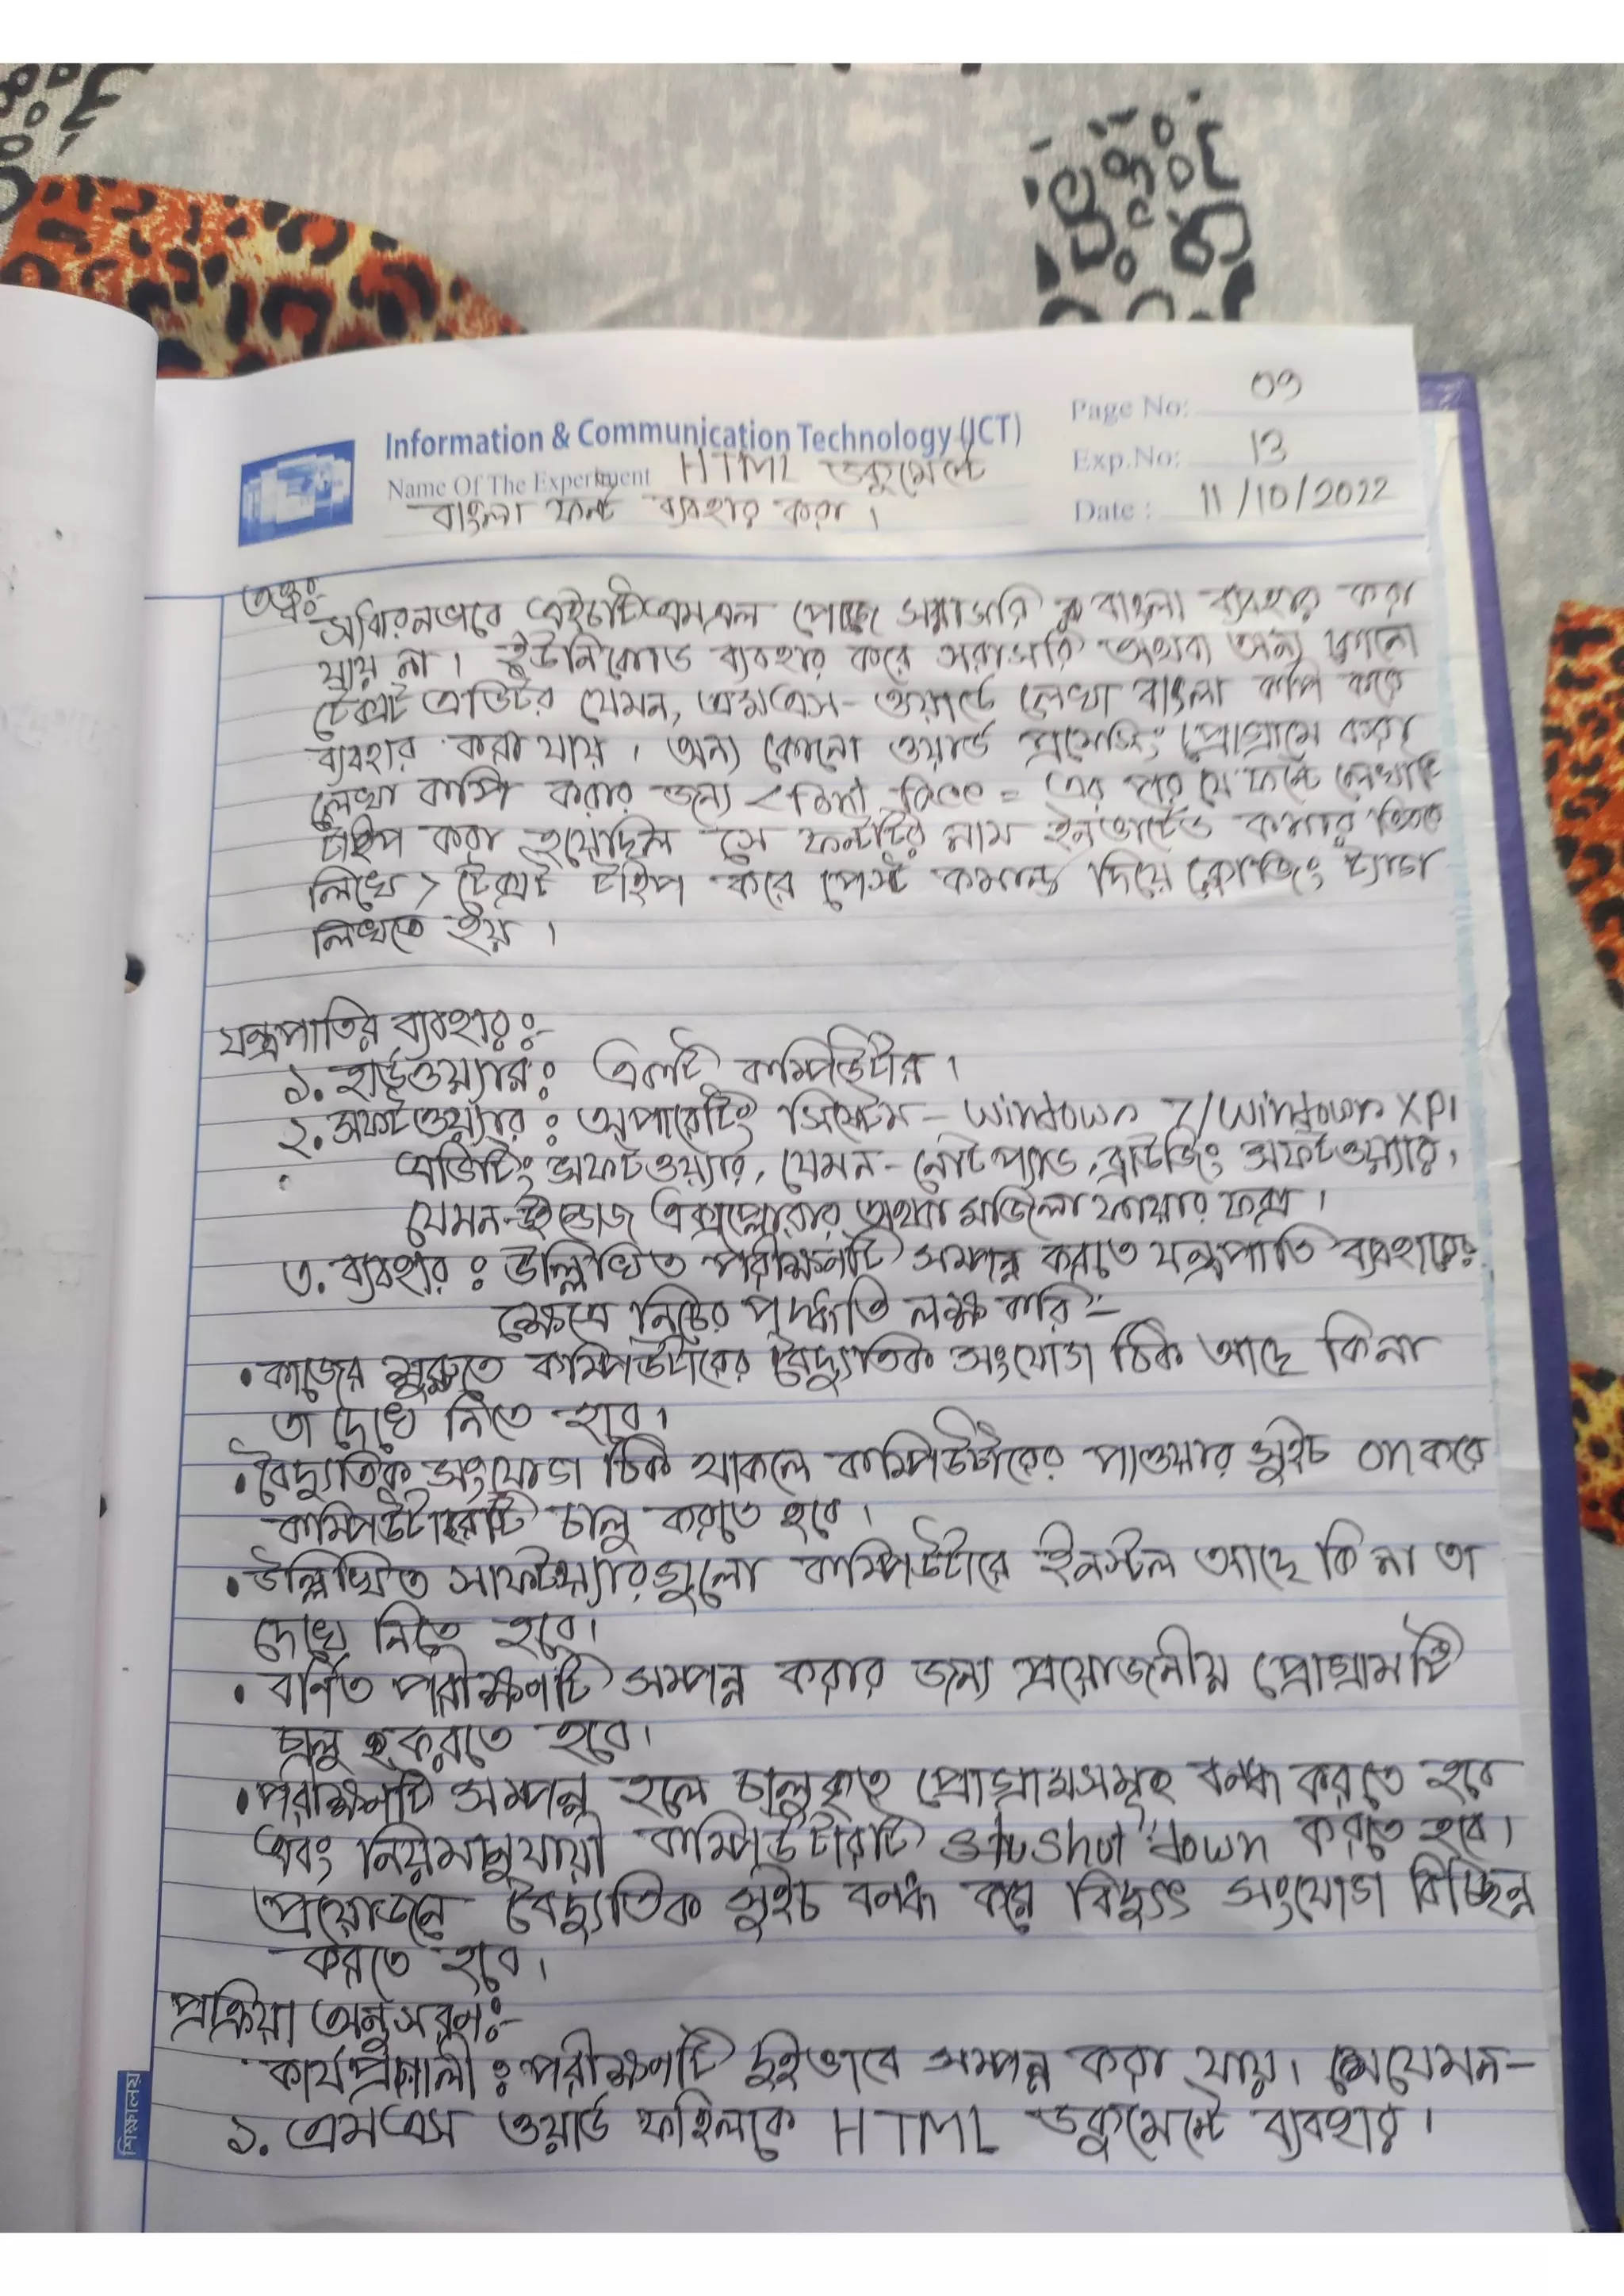 Information & Communication Technology (ICT)
Page No: 03
Name Of The Experiment HTML ডকুমেন্টে
Exp.No: 13
বাংলা ফন্ট ব্যবহার করা।
Date : 11/10/2022
তত্ত্বঃ-
সাধারনভাবে এইচটিএমএল পেজে সরাসরি বাংলা ব্যবহার করা
যায় না। ইউনিকোড ব্যবহার করে সরাসরি অথবা অন্য কোনো
টেক্সট এডিটর যেমন, এমএস-ওয়ার্ডে লেখা বাংলা কপি করে
ব্যবহার করা যায়। অন্য কোনো ওয়ার্ড প্রসেসিং প্রোগ্রামে করা
লেখা কপি করার জন্য <font face= এর পর যে ফন্টে লেখাটি
টাইপ করা হয়েছিল সে ফন্টটির নাম ইনভার্টেড কমার ভিতর
লিখে > টেক্সট টাইপ করে পেস্ট কমান্ড দিয়ে ক্লোজিং ট্যাগ
লিখতে হয়।
যন্ত্রপাতির ব্যবহারঃ-
১. হার্ডওয়্যারঃ একটি কম্পিউটার।
২. সফটওয়্যারঃ অপারেটিং সিস্টেম- Windown 7/Windown XP।
এডিটিং সফটওয়্যার, যেমন- নোটপ্যাড, ব্রাউজিং সফটওয়্যার,
যেমন- ইন্ডোজ এক্সপ্লোরার অথবা মজিলা ফায়ার ফক্স।
৩. ব্যবহারঃ উল্লিখিত পরীক্ষণটি সম্পন্ন করতে যন্ত্রপাতি ব্যবহারের
ক্ষেত্রে নিচের পদ্ধতি লক্ষ করি:-
• কাজের শুরুতে কম্পিউটারের বৈদ্যুতিক সংযোগ ঠিক আছে কিনা
তা দেখে নিতে হবে।
• বৈদ্যুতিক সংযোগ ঠিক থাকলে কম্পিউটারের পাওয়ার সুইচ on করে
কম্পিউটারটি চালু করতে হবে।
• উল্লিখিত সফটওয়্যারগুলো কম্পিউটারে ইনস্টল আছে কি না তা
দেখে নিতে হবে।
• বর্ণিত পরীক্ষণটি সম্পন্ন করার জন্য প্রয়োজনীয় প্রোগ্রামটি
চালু করতে হবে।
• পরীক্ষণটি সম্পন্ন হলে চালুকৃত প্রোগ্রামসমূহ বন্ধ করতে হবে
এবং নিয়মানুযায়ী কম্পিউটারটি shut down করতে হবে।
প্রয়োজনে বৈদ্যুতিক সুইচ বন্ধ করে বিদ্যুৎ সংযোগ বিচ্ছিন্ন
করতে হবে।
প্রক্রিয়া অনুসরনঃ-
কার্যপ্রণালীঃ পরীক্ষণটি দুইভাবে সম্পন্ন করা যায়। যেমন-
১. এমএস ওয়ার্ড ফাইলকে HTML ডকুমেন্টে ব্যবহার।
শিক্ষালয়